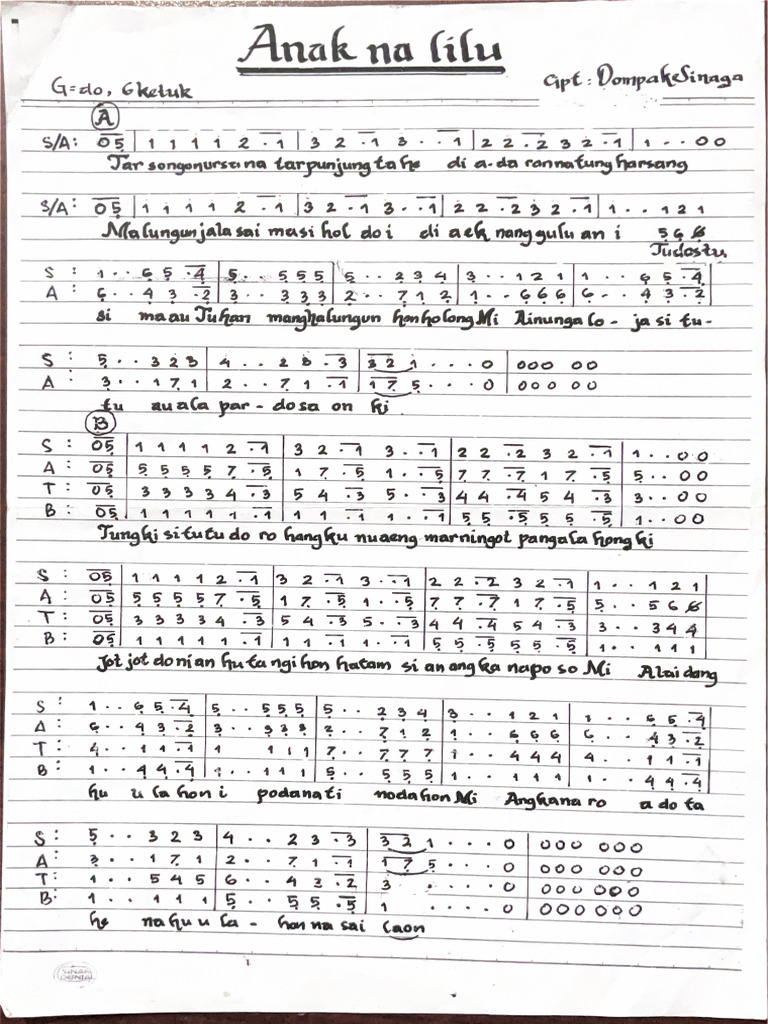 Anak na lilu
G=do, 6 ketuk
Cipt : Dompak Sinaga
A
S/A: 05 | 1 1 1 1 2 . 1 | 3 2 . 1 3 . . 1 | 2 2 . 2 3 2 . 1 | 1 . . 0 0
Tar songonursuna tarpunjung ta he di a-da rannatung harsang
S/A: 05 | 1 1 1 1 2 . 1 | 3 2 . 1 3 . . 1 | 2 2 . 2 3 2 . 1 | 1 . . 1 2 1
Malungunjala sai masi hol do i di aek nangguluan i 5 6 6
Tudostu
S : 1 . . 6 5 . 4 | 5 . . 5 5 5 | 5 . . 2 3 4 | 3 . . 1 2 1 | 1 . . 6 5 . 4
A : 6 . . 4 3 . 2 | 3 . . 3 3 3 | 2 . . 7 1 2 | 1 . . 6 6 6 | 6 . . 4 3 . 2
si maau Tuhan manghalungun honholong Mi Ainunga lo - ja si tu-
S : 5 . . 3 2 3 | 4 . . 2 3 . 3 | 3 2 1 . . . 0 | 0 0 0 0 0
A : 3 . . 1 7 1 | 2 . . 7 1 . 1 | 1 7 5 . . . 0 | 0 0 0 0 0
tu auala par - dosa on ki
B
S : 05 | 1 1 1 1 2 . 1 | 3 2 . 1 3 . . 1 | 2 2 . 2 3 2 . 1 | 1 . . 0 0
A : 05 | 5 5 5 5 7 . 5 | 1 7 . 5 1 . . 5 | 7 7 . 7 1 7 . 5 | 5 . . 0 0
T : 05 | 3 3 3 3 4 . 3 | 5 4 . 3 5 . . 3 | 4 4 . 4 5 4 . 3 | 3 . . 0 0
B : 05 | 1 1 1 1 1 . 1 | 1 1 . 1 1 . . 1 | 5 5 . 5 5 5 . 5 | 1 . . 0 0
Tungki situtu do ro hangku nuaeng marningot pangala hong ki
S : 05 | 1 1 1 1 2 . 1 | 3 2 . 1 3 . 1 | 2 2 . 2 3 2 . 1 | 1 . . 1 2 1
A : 05 | 5 5 5 5 7 . 5 | 1 7 . 5 1 . . 5 | 7 7 . 7 1 7 . 5 | 5 . . 5 6 6
T : 05 | 3 3 3 3 4 . 3 | 5 4 . 3 5 . . 3 | 4 4 . 4 5 4 . 3 | 3 . . 3 4 4
B : 05 | 1 1 1 1 1 . 1 | 1 1 . 1 1 . . 1 | 5 5 . 5 5 5 . 5 | 1 . . 1 1 1
Jot jot do nian hu ta ngi hon hatam si an angka napo so Mi Alai dang
S : 1 . . 6 5 . 4 | 5 . . 5 5 5 | 5 . . 2 3 4 | 3 . . 1 2 1 | 1 . . 6 5 . 4
A : 6 . . 4 3 . 2 | 3 . . 3 3 3 | 2 . . 7 1 2 | 1 . . 6 6 6 | 6 . . 4 3 . 2
T : 4 . . 1 1 . 1 | 1 1 1 1 | 7 . . 7 7 7 | 1 . . 4 4 4 | 4 . . 1 1 . 1
B : 1 . . 4 4 . 4 | 1 . . 1 1 1 | 5 . . 5 5 5 | 1 . . 1 1 1 | 1 . . 4 4 . 4
hu u la hon i podanati nodahon Mi Angkana ro a do ta
S : 5 . . 3 2 3 | 4 . . 2 3 . 3 | 3 2 1 . . . 0 | 0 0 0 0 0 0
A : 3 . . 1 7 1 | 2 . . 7 1 . 1 | 1 7 5 . . . 0 | 0 0 0 0 0 0
T : 1 . . 5 4 5 | 6 . . 4 3 . 2 | 3 . . . . 0 | 0 0 0 0 0 0
B : 1 . . 1 1 1 | 5 . . 5 5 . 5 | 1 . . . . 0 | 0 0 0 0 0 0
he na hu u la - hon na sai laon
SINAR DUNIA